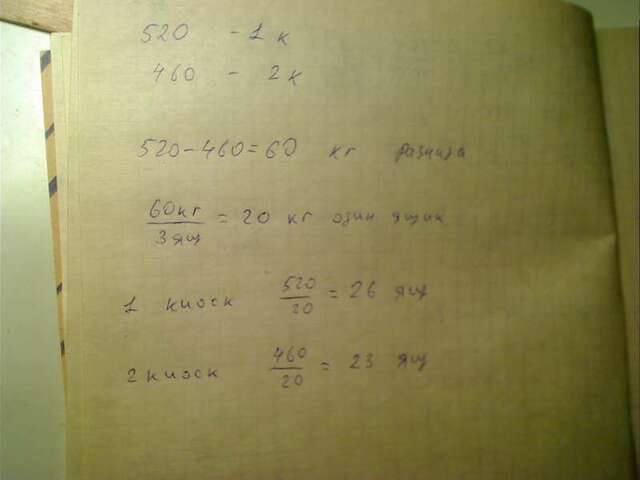 520 - 1 к
460 - 2 к
520-460=60 кг разница
60кг/3ящ = 20 кг один ящик
1 киоск 520/20 = 26 ящ
2 киоск 460/20 = 23 ящ